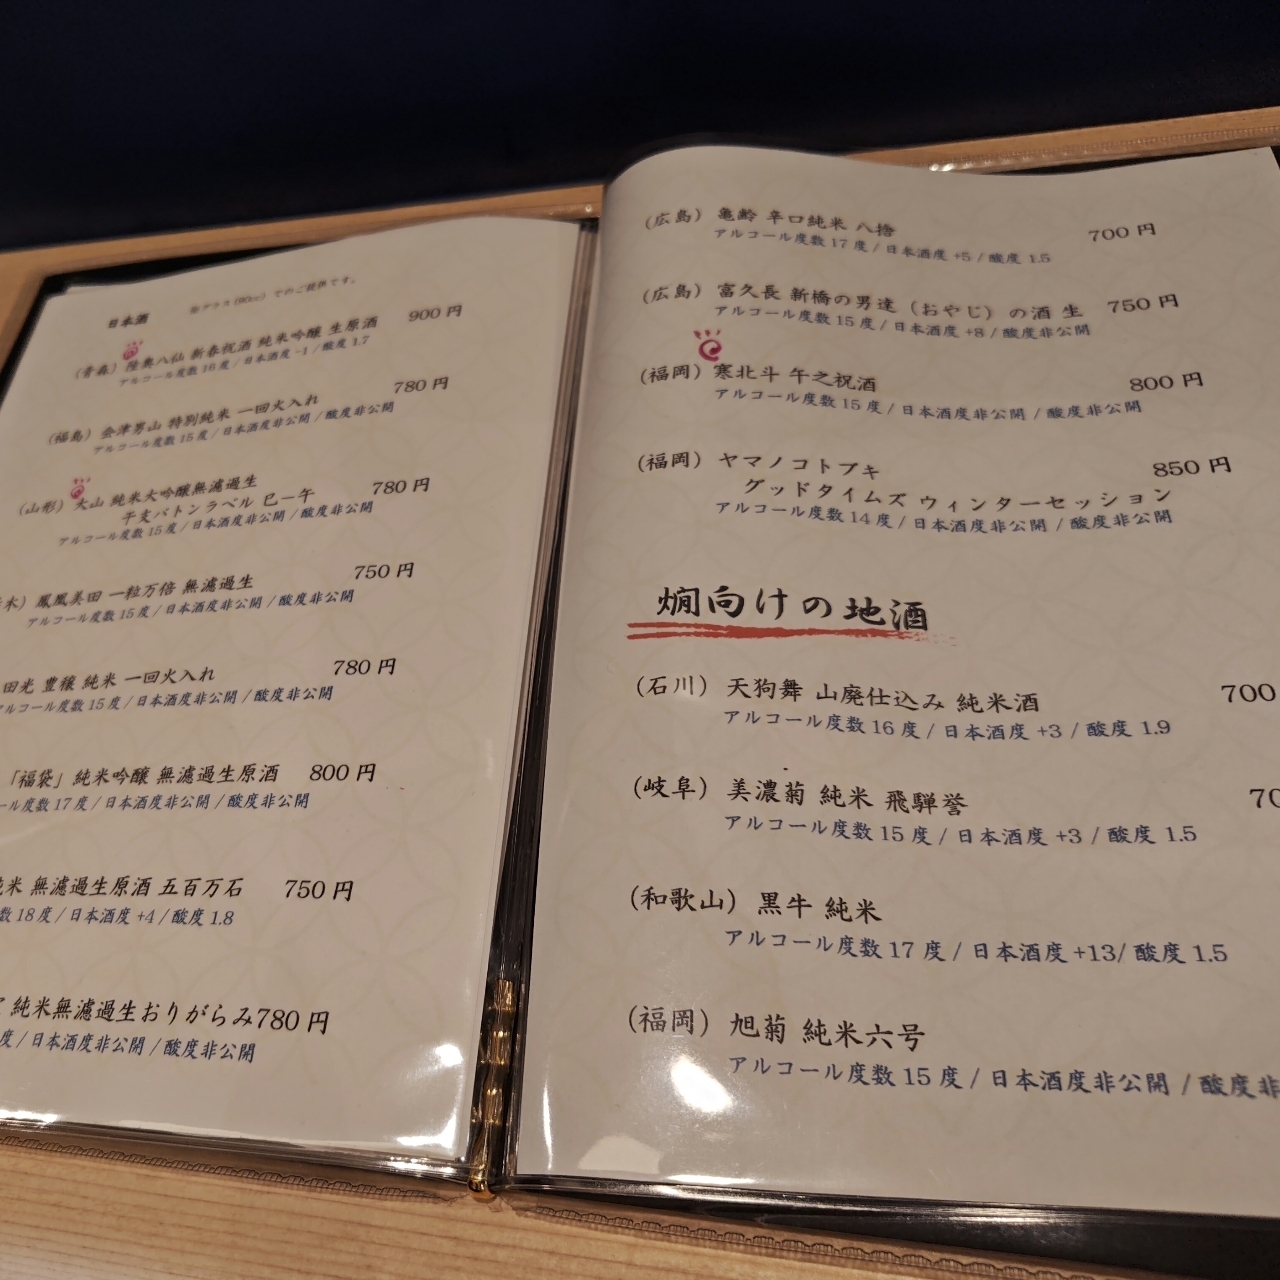 日本酒
グラス(90cc)でのご提供です。
(青森) 陸奥八仙 新春祝酒 純米吟醸 生原酒 900円
アルコール度数16度/日本酒度-1/酸度1.7
(福島) 会津男山 特別純米 一回火入れ 780円
アルコール度数15度/日本酒度非公開/酸度非公開
(山形) 大山 純米大吟醸無濾過生 780円
干支バトンラベル 巳ー午
アルコール度数15度/日本酒度非公開/酸度非公開
木) 鳳凰美田 一粒万倍 無濾過生 750円
アルコール度数15度/日本酒度非公開/酸度非公開
田光 豊穣 純米 一回火入れ 780円
アルコール度数15度/日本酒度非公開/酸度非公開
「福袋」純米吟醸 無濾過生原酒 800円
ール度数17度/日本酒度非公開/酸度非公開
米 無濾過生原酒 五百万石 750円
数18度/日本酒度+4/酸度1.8
純米無濾過生おりがらみ780円
度/日本酒度非公開/酸度非公開
(広島) 亀齢 辛口純米 八拾 700円
アルコール度数17度/日本酒度+5/酸度1.5
(広島) 富久長 新橋の男達(おやじ)の酒 生 750円
アルコール度数15度/日本酒度+8/酸度非公開
(福岡) 寒北斗 午之祝酒 800円
アルコール度数15度/日本酒度非公開/酸度非公開
(福岡) ヤマノコトブキ 850円
グッドタイムズ ウィンターセッション
アルコール度数14度/日本酒度非公開/酸度非公開
燗向けの地酒
(石川) 天狗舞 山廃仕込み 純米酒 700
アルコール度数16度/日本酒度+3/酸度1.9
(岐阜) 美濃菊 純米 飛騨誉 70
アルコール度数15度/日本酒度+3/酸度1.5
(和歌山) 黒牛 純米
アルコール度数17度/日本酒度+13/酸度1.5
(福岡) 旭菊 純米六号
アルコール度数15度/日本酒度非公開/酸度非